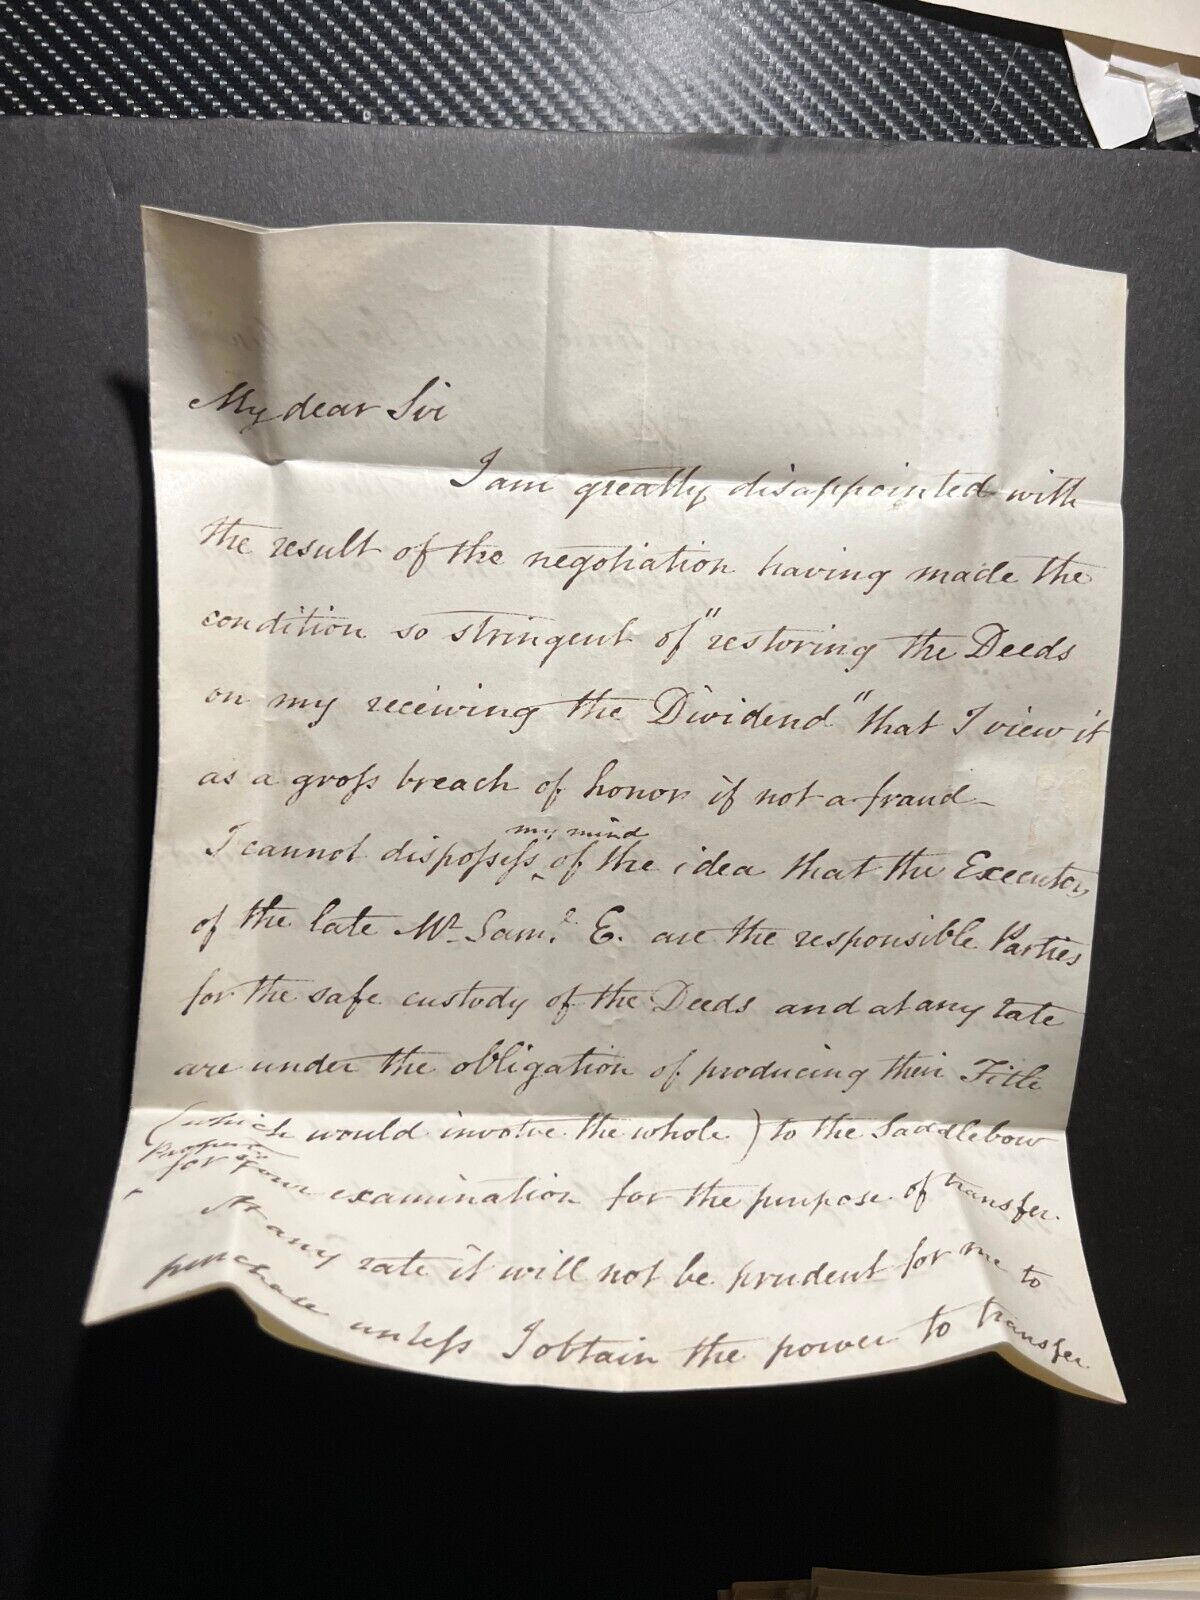 My dear Sir
I am greatly disappointed with
the result of the negotiation having made the
condition so stringent of "restoring the Deeds
on my receiving the Dividend" that I view it
as a gross breach of honor if not a fraud –
my mind
I cannot dispossess ‸ of the idea that the Executors
of the late Mr. Saml. E. are the responsible Parties
for the safe custody of the Deeds and at any rate
are under the obligation of producing their Title
(which would involve the whole) to the Saddlebow
for your examination for the purpose of transfer.
At any rate it will not be prudent for me to
purchase unless I obtain the power to transfer